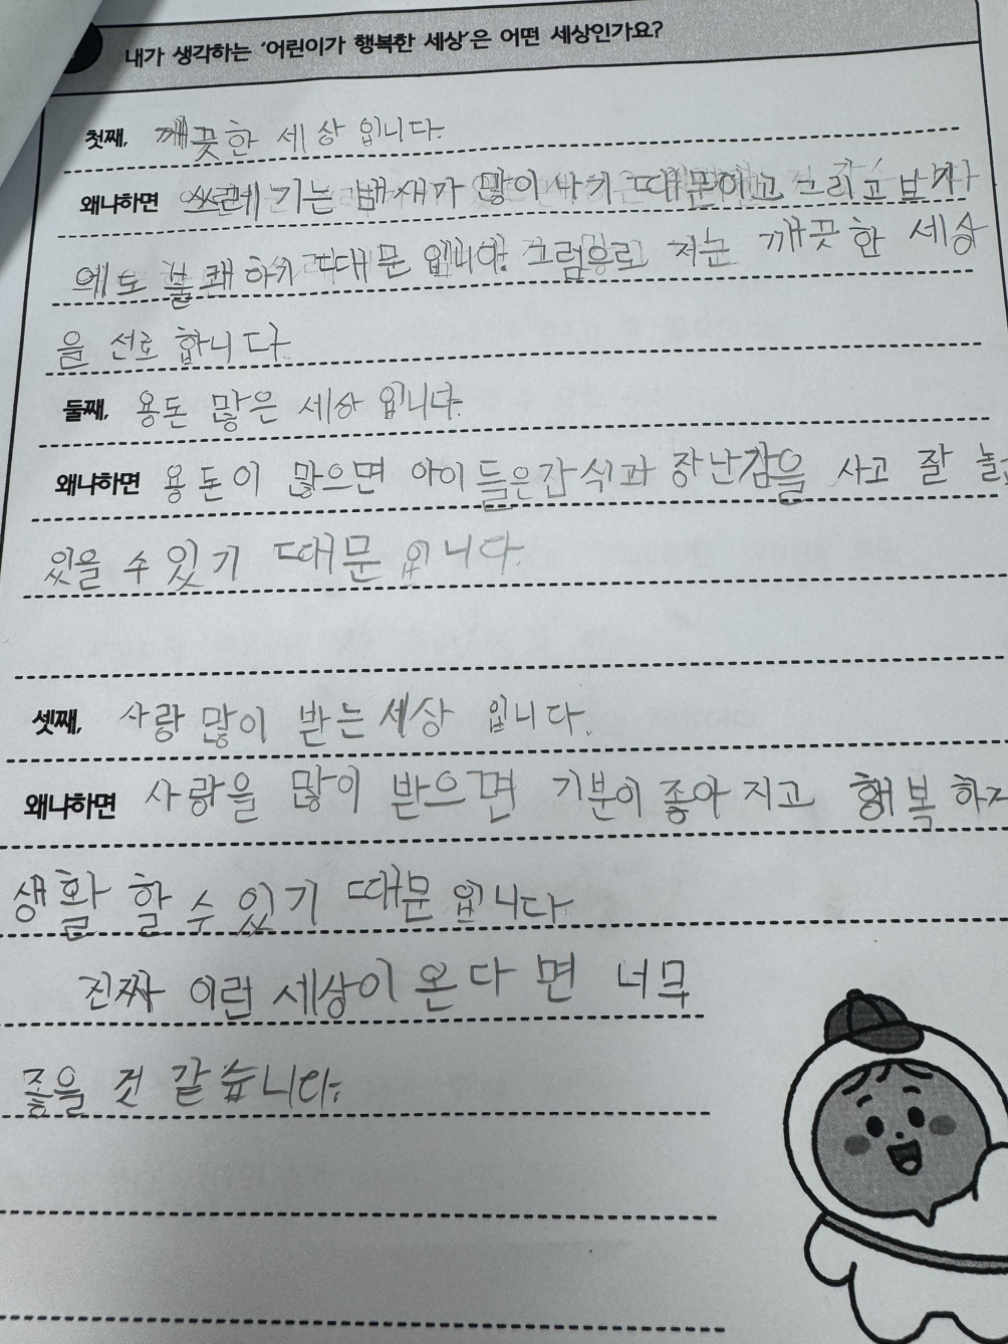 내가 생각하는 '어린이가 행복한 세상'은 어떤 세상인가요?
첫째, 깨끗한 세상 입니다.
왜냐하면 쓰레기는 냄새가 많이 나기 때문이고 그리고 보기
에도 불쾌하기 때문 입니다. 그럼으로 저는 깨끗한 세상
을 선호 합니다.
둘째, 용돈 많은 세상 입니다.
왜냐하면 용돈이 많으면 아이들은 간식과 장난감을 사고 잘 놀고
있을 수 있기 때문 입니다.
셋째, 사랑 많이 받는 세상 입니다.
왜냐하면 사랑을 많이 받으면 기분이 좋아 지고 행복
생활 할 수 있기 때문 입니다.
진짜 이런 세상이 온다면 너무
좋을 것 같습니다.